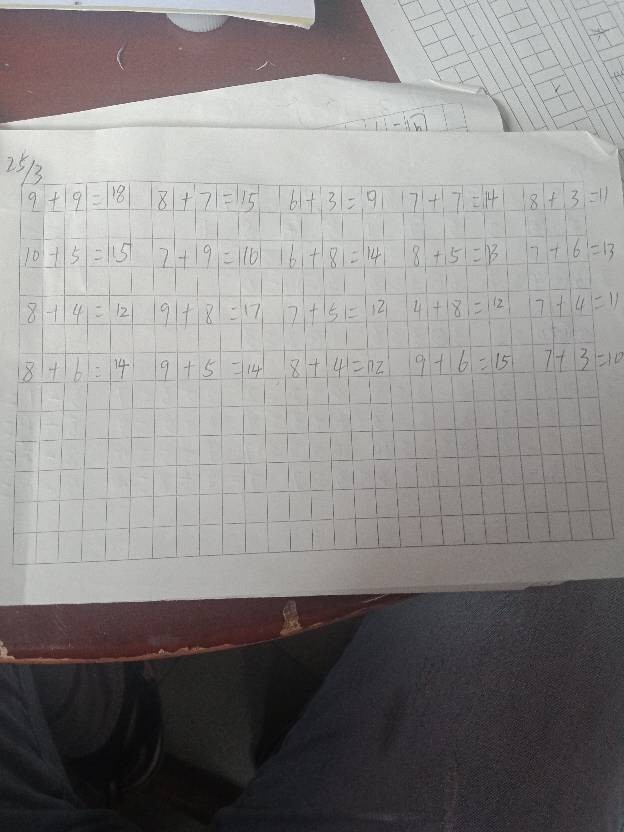 25/3
9+9=18 8+7=15 6+3=9 7+7=14 8+3=11
10+5=15 7+9=16 6+8=14 8+5=13 7+6=13
8+4=12 9+8=17 7+5=12 4+8=12 7+4=11
8+6=14 9+5=14 8+4=12 9+6=15 7+3=10